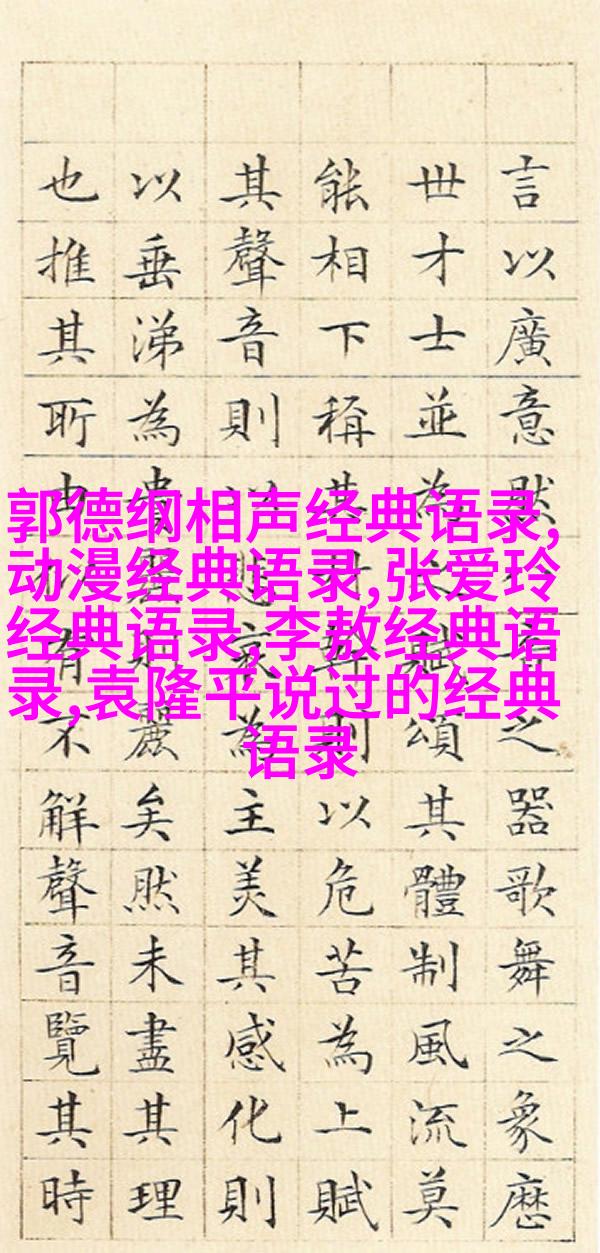 言以廣意然八音之器歌舞之象歷
世才士並為之賦頌其體制風流莫
能相下稱其幹則以危苦為上賦
其聲音則以悲哀為主美其感化則
以垂涕為貴麗則麗矣然未盡其理
也推其所由似有不解聲音覽其時
郭德纲相声经典语录,
动漫经典语录,张爱玲
经典语录,李敖经典语
录,袁隆平说过的经典
语录